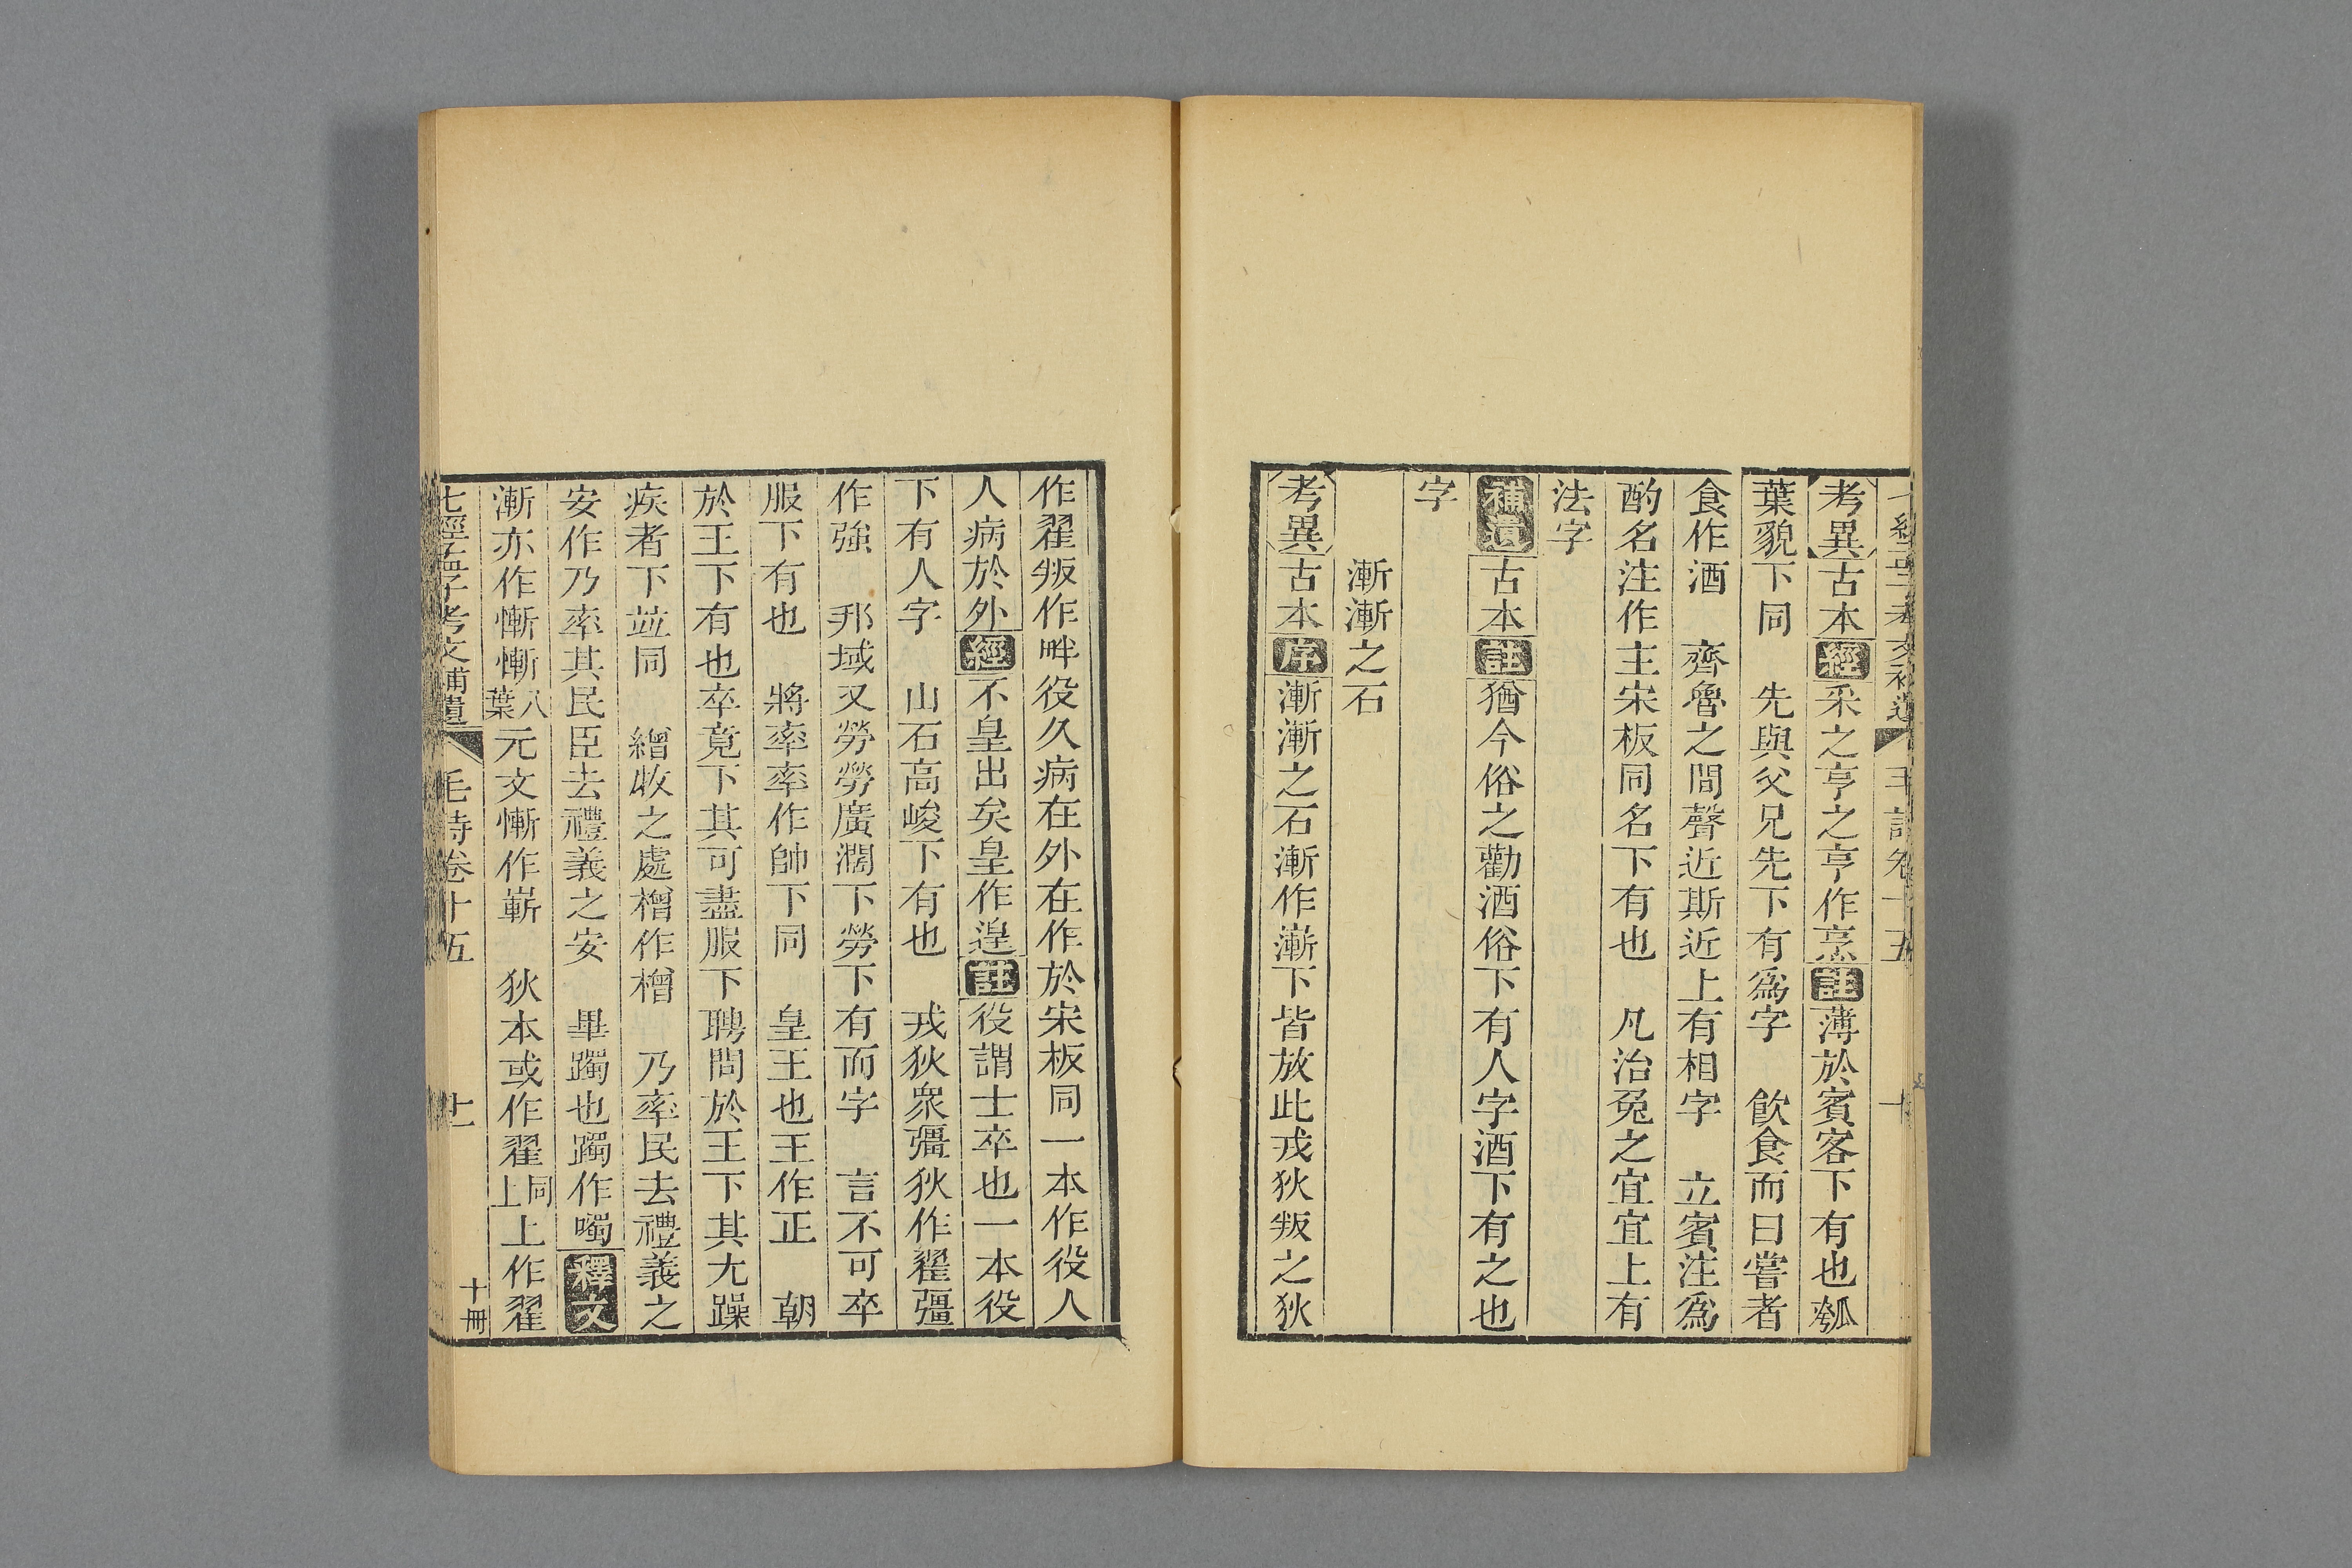 考異古本經采之亨之亨作烹註薄於賓客下有也瓠
葉貌下同　先與父兄先下有爲字　飲食而曰嘗者
食作酒　齊魯之間聲近斯近上有相字　立賓注爲
酌名注作主宋板同名下有也　凡治兔之宜宜上有
法字
補遺古本註猶今俗之勸酒俗下有人字酒下有之也
字
漸漸之石
考異古本序漸漸之石漸作漸下皆放此戎狄叛之狄
作翟叛作畔役久病在外在作於宋板同一本作役人
人病於外經不皇出矣皇作遑註役謂士卒也一本役
下有人字　山石高峻下有也　戎狄衆彊狄作翟彊
作強　邦域又勞勞廣濶下勞下有而字　言不可卒
服下有也　將率率作帥下同　皇王也王作正　朝
於王下有也卒竟下其可盡服下聘問於王下其尢躁
疾者下並同　繒收之處橧作橧　乃率民去禮義之
安作乃率其民臣去禮義之安　畢躅也躅作噣釋文
漸亦作慚慚八葉元文慚作嶄　狄本或作翟同上上作翟
七經孟子考文補遺　毛詩卷十五　十一　十冊